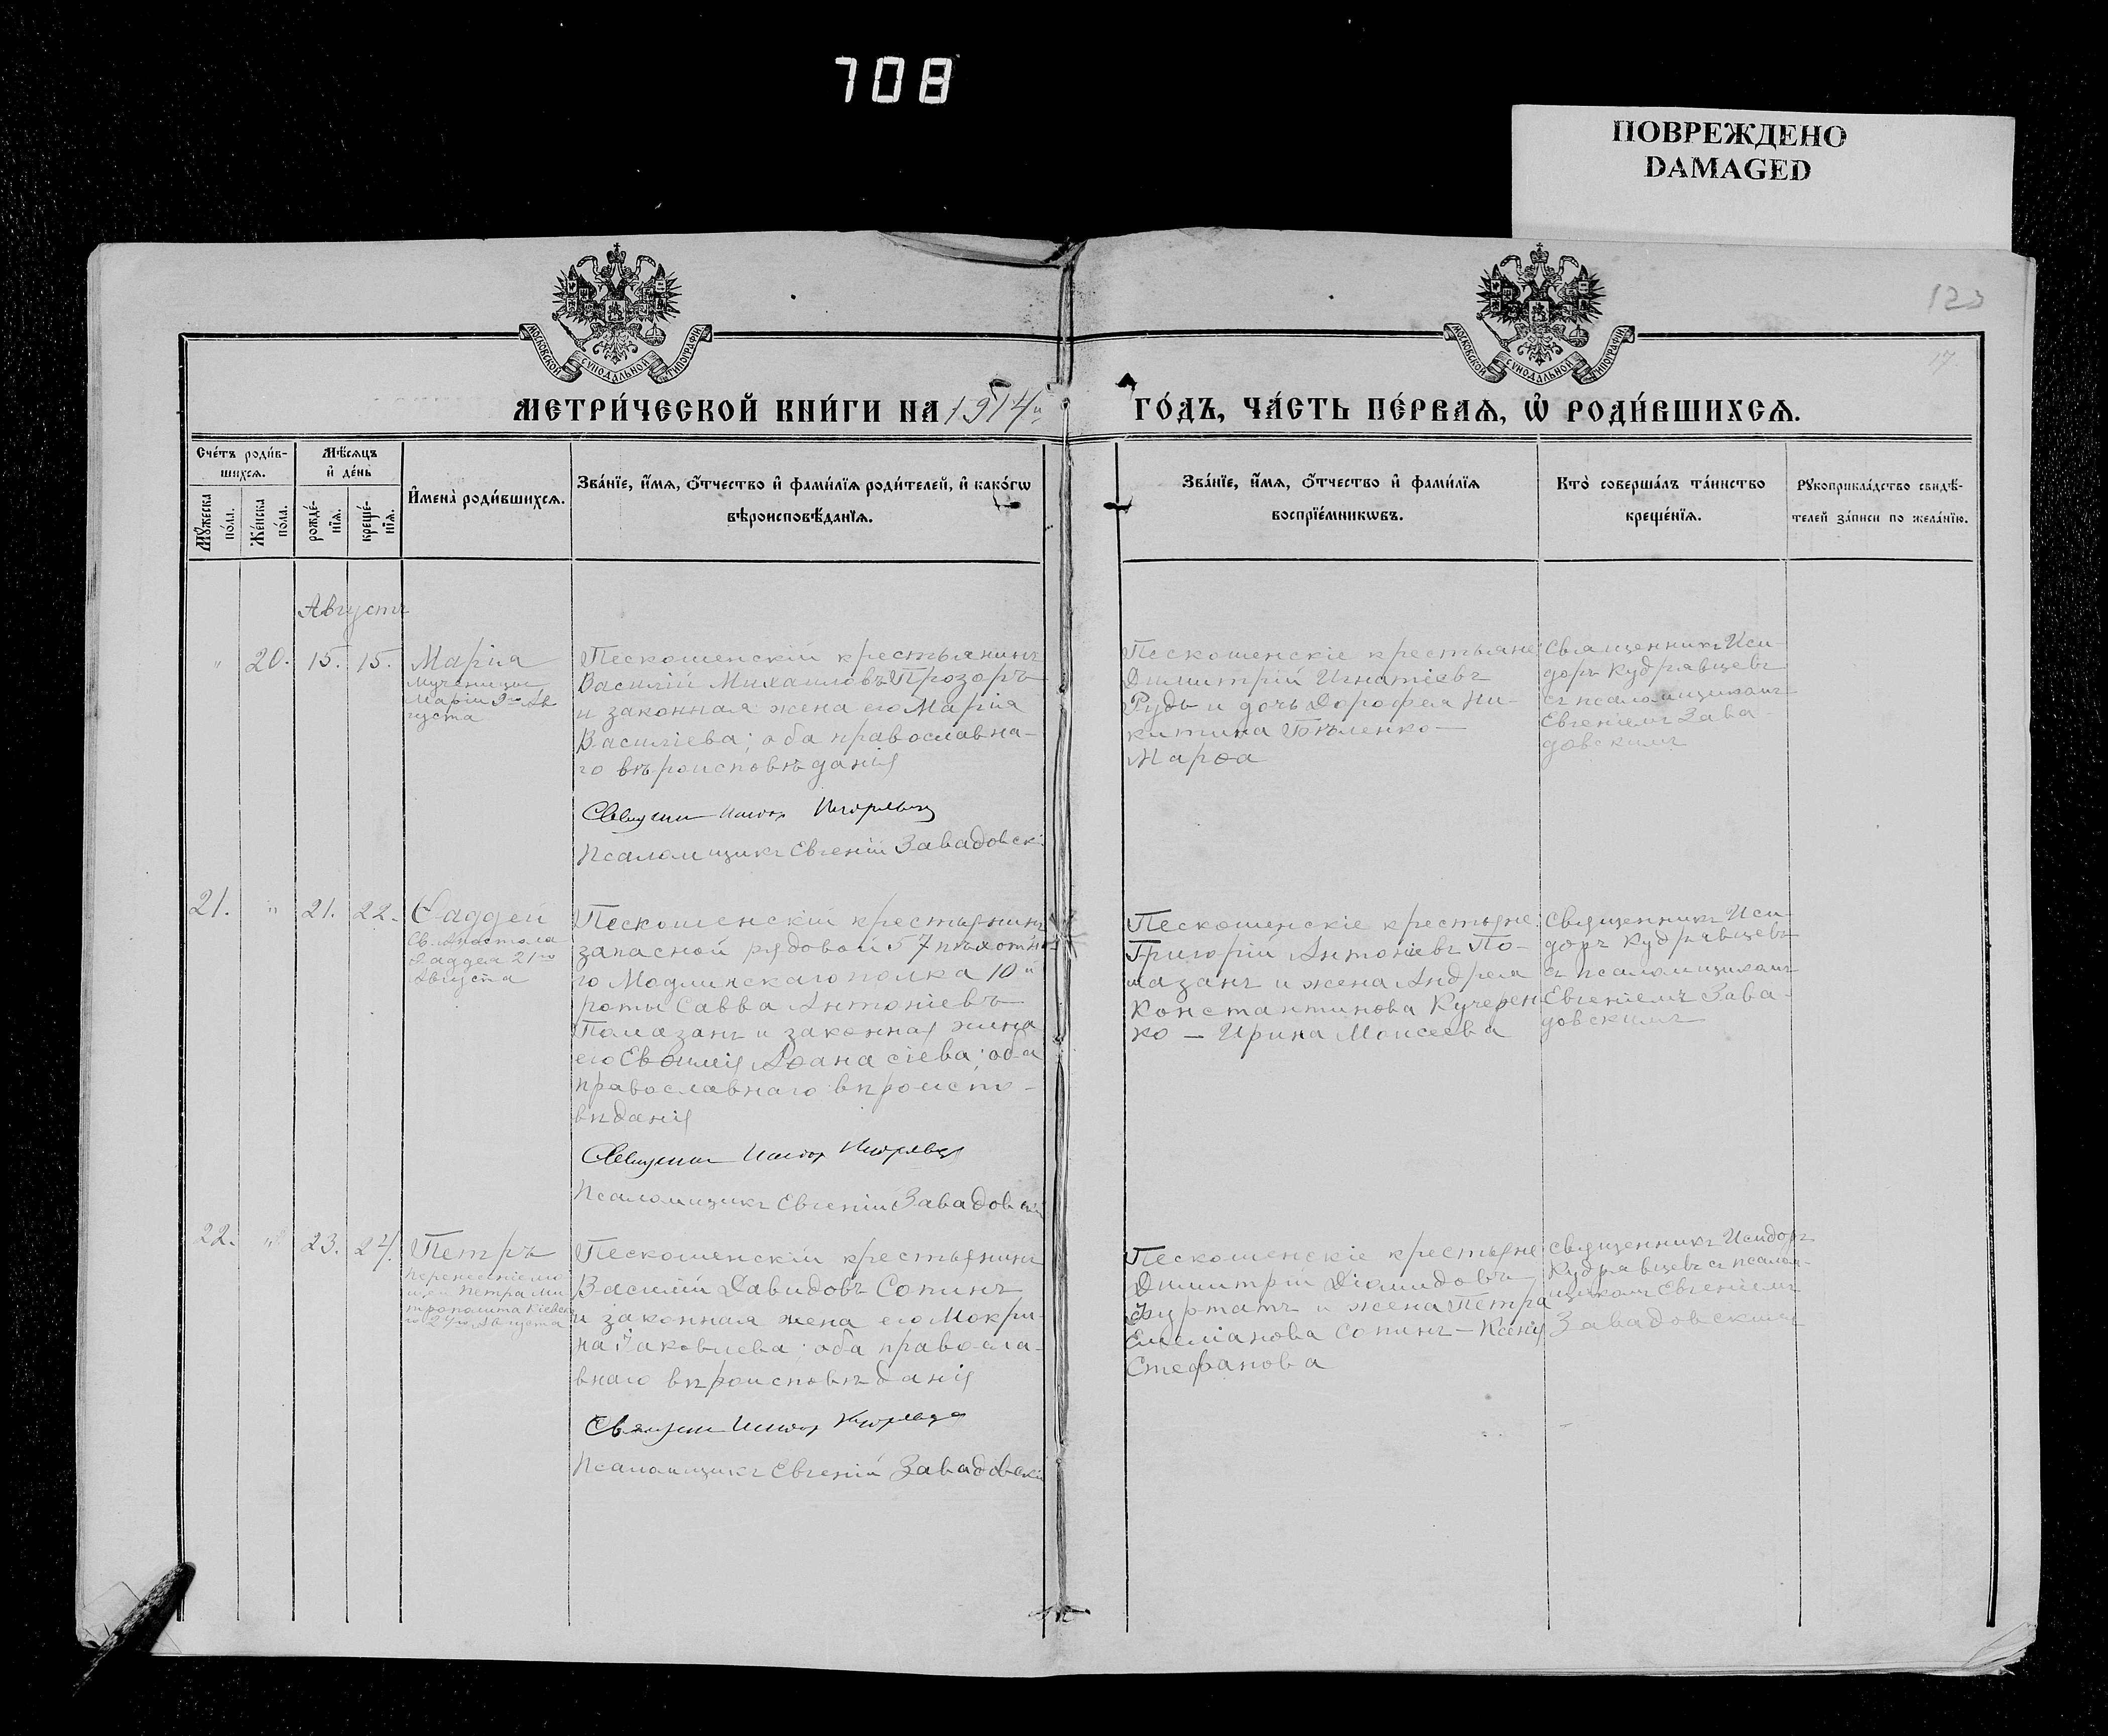 708
ПОВРЕЖДЕНО
DAMAGED
123
17
МОСКОВСКОЙ СУНОДАЛЬНОЙ ТИПОГРАФІИ
МОСКОВСКОЙ СУНОДАЛЬНОЙ ТИПОГРАФІИ
МЕТРИ́ЧЕСКОЙ КНИ́ГИ НА 1914й
ГО́ДЪ, ЧА́СТЬ ПЕ́РВАѦ, Ѡ҆ РОДИ́ВШИХСѦ.
Сче́тъ роди́в-
шихсѧ.
Мѣ́сѧцъ
и҆ де́нь
Мꙋ́жеска
по́ла.
Же́нска
по́ла.
рожде́-
нїѧ.
креще́-
нїѧ.
И҆мена̀ роди́вшихсѧ.
Зва́нїе, и҆́мѧ, ѻ҆́тчество и҆ фами́лїѧ роди́телей, и҆ како́гѡ
вѣроисповѣ́данїѧ.
Зва́нїе, и҆́мѧ, ѻ҆́тчество и҆ фами́лїѧ
воспрїе́мникѡвъ.
Кто̀ соверша́лъ та́инство
креще́нїѧ.
Рꙋкоприкла́дство свидѣ́-
телей за́писи по жела́нїю.
Августъ
" 20. 15. 15. Марiя
Мученицы
Марiи 9го Ав
густа
Пескошенскiй крестьянинъ
Василiй Михаиловъ Прозоръ
и законная жена его Марiя
Василiева; оба православна-
го вѣроисповѣданiя
Псаломщикъ Евгенiй Завадовскi
Пескошенскiе крестьяне
Димитрiй Игнатiевъ
Рудь и дочь Дорофея Ни-
китина Бѣленко —
Марѳа
Священникъ Иси-
доръ Кудрявцевъ
съ псаломщикомъ
Евгенiемъ Зава-
довскимъ
21. " 21. 22. Ѳаддей
Св. Апостола
Ѳаддея 21го
Августа
Пескошенскiй крестьянинъ
запасной рядовой 57 пѣхотна-
го Модлинскаго полка 10й
роты Савва Антонiевъ
Помазанъ и законная жена
его Евѳимiя Аѳанасiева; оба
православнаго вѣроиспо-
вѣданiя
Псаломщикъ Евгенiй Завадовскiй
Пескошенскiе крестьяне
Григорiй Антонiевъ По-
мазанъ и жена Андрея
Константинова Кучерен-
ко — Ирина Моисеева
Священникъ Иси-
доръ Кудрявцевъ
съ псаломщикомъ
Евгенiемъ Зава-
довскимъ
22. " 23. 24. Петръ
Перенесенiе мо
щей Петра Ми
трополита Кiевск
го 24го Августа
Пескошенскiй крестьянинъ
Василiй Давидовъ Сопинъ
и законная жена его Мокри-
на Iаковлева; оба правосла-
внаго вѣроисповѣданiя
Псаломщикъ Евгенiй Завадовскiй
Пескошенскiе крестьяне
Димитрiй Дiомидовъ
и жена Петра
Емелiанова Сопинъ — Ксенiя
Стефанова
Священникъ Исидоръ
Кудрявцевъ съ псалом-
щикомъ Евгенiемъ
Завадовскимъ